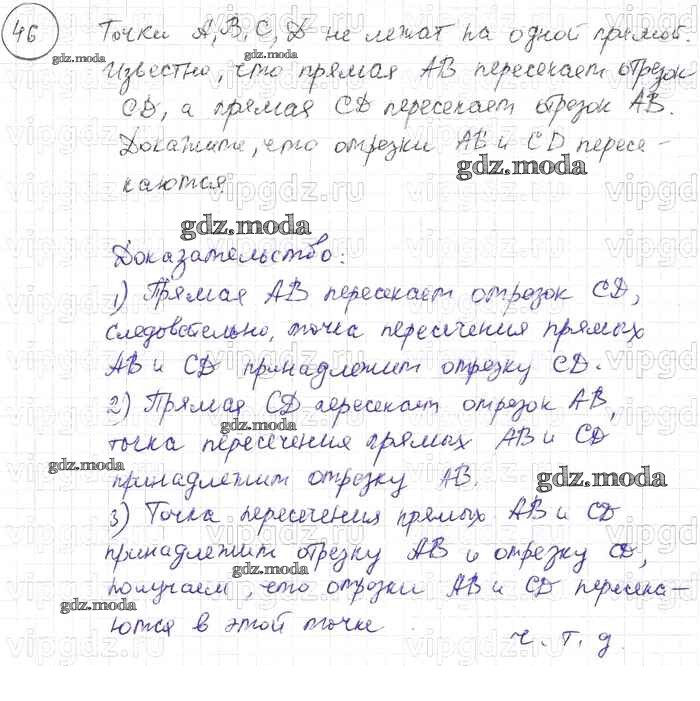 46 Точки A, B, C, D не лежат на одной прямой.
Известно, что прямая AB пересекает отрезок
CD, а прямая CD пересекает отрезок AB.
Докажите, что отрезки AB и CD пересе-
каются.
Доказательство:
1) Прямая AB пересекает отрезок CD,
следовательно, точка пересечения прямых
AB и CD принадлежит отрезку CD.
2) Прямая CD пересекает отрезок AB,
точка пересечения прямых AB и CD
принадлежит отрезку AB.
3) Точка пересечения прямых AB и CD
принадлежит отрезку AB и отрезку CD,
получаем, что отрезки AB и CD пересека-
ются в этой точке
ч. т. д.
gdz.moda
gdz.moda
gdz.moda
gdz.moda
gdz.moda
gdz.moda
gdz.moda
gdz.moda
gdz.moda
gdz.moda
vipgdz.ru